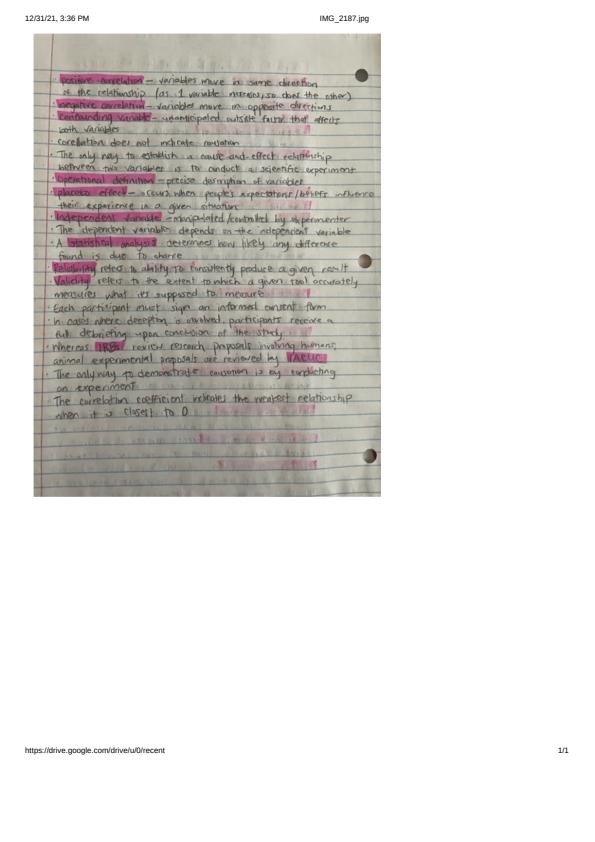 12/31/21, 3:36 PM
IMG_2187.jpg
· positive correlation – variables move in same direction
of the relationship (as 1 variable increases, so does the other)
· negative correlation – variables move in opposite directions
· confounding variable – unanticipated outside factor that affects
both variables
· correllation does not indicate causation
· The only way to establish a cause-and-effect relationship
between two variables is to conduct a scientific experiment
· operational definition – precise description of variables
· placebo effect – occurs when people's expectations/beliefs influence
their experience in a given situation
· Independent variable – manipulated/controlled by experimenter
· The dependent variable depends on the independent variable
· A statistical analysis determines how likely any difference
found is due to chance
· Reliability refers to ability to consistently produce a given result
· Validity refers to the extent to which a given tool accurately
measures what it's supposed to measure
· Each participant must sign an informed consent form
· In cases where deception is involved, participants receive a
full debriefing upon conclusion of the study
· Whereas IRBs review research proposals involving humans,
animal experimental proposals are reviewed by IACUC
· The only way to demonstrate causation is by conducting
an experiment
· The correlation coefficient indicates the weakest relationship
when it is closest to 0
https://drive.google.com/drive/u/0/recent
1/1